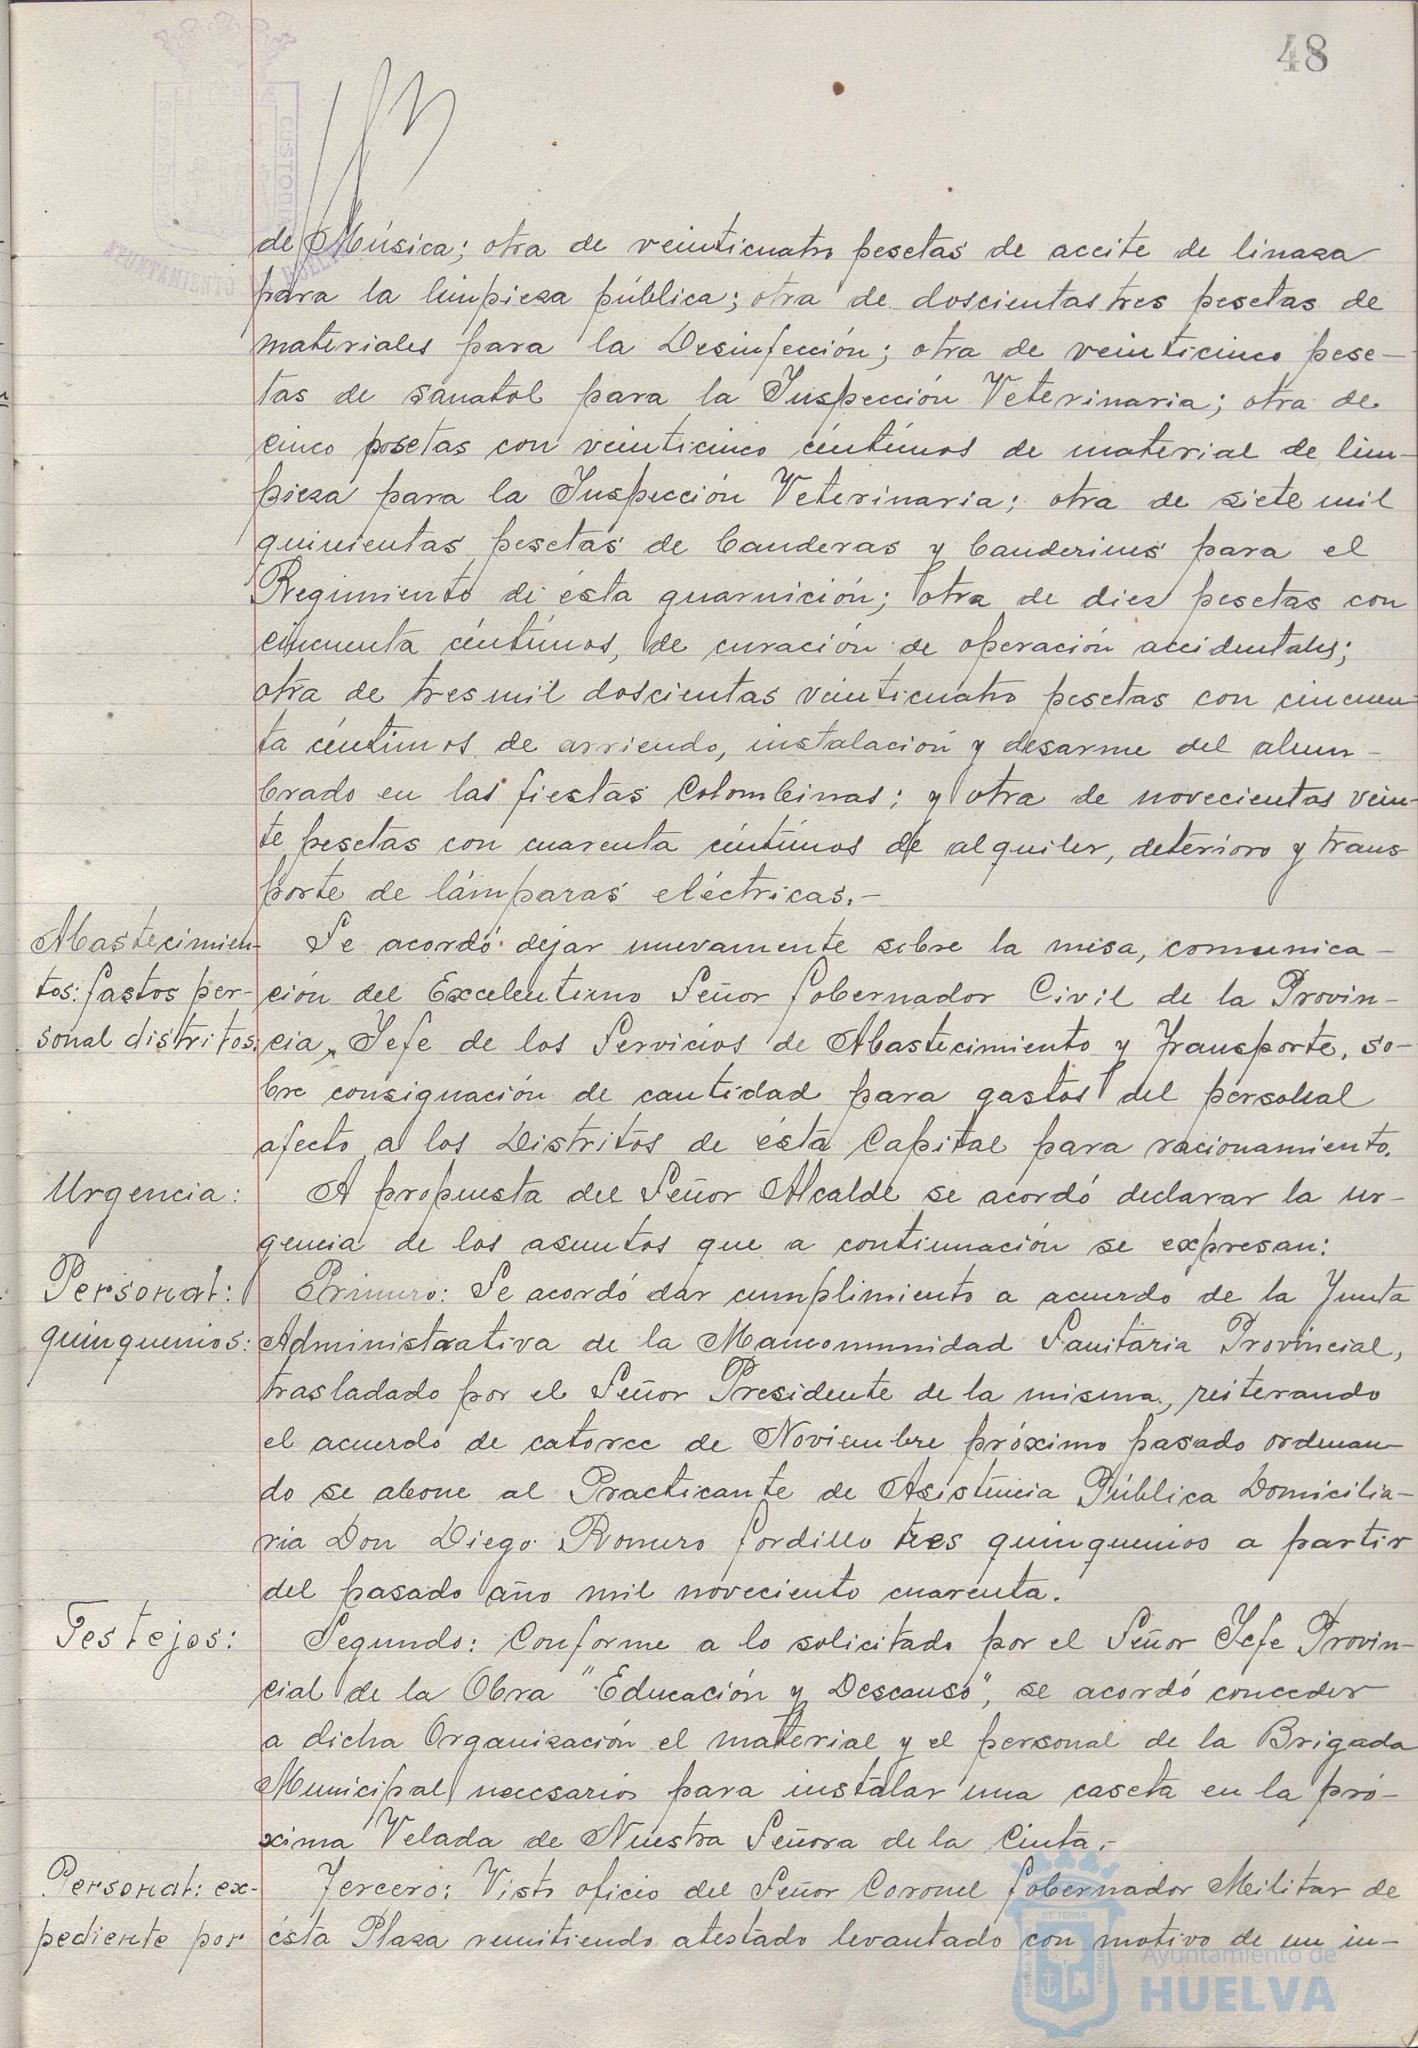 48
de Música; otra de veinticuatro pesetas de aceite de linaza
para la limpieza pública; otra de doscientas tres pesetas de
materiales para la Desinfección; otra de veinticinco pese-
tas de sanatol para la Inspección Veterinaria; otra de
cinco pesetas con veinticinco céntimos de material de lim-
pieza para la Inspección Veterinaria; otra de siete mil
quinientas pesetas de banderas y banderines para el
Regimiento de ésta guarnición; otra de diez pesetas con
cincuenta céntimos, de curación de operación accidentales;
otra de tres mil doscientas veinticuatro pesetas con cincuen-
ta céntimos de arriendo, instalación y desarme del alum-
brado en las fiestas Colombinas; y otra de novecientas vein-
te pesetas con cuarenta céntimos de alquiler, deterioro y trans
porte de lámparas eléctricas.-
Abastecimien-
tos: gastos per-
sonal distritos.
Se acordó dejar nuevamente sobre la mesa, comunica-
ción del Excelentísmo Señor Gobernador Civil de la Provin-
cia, Jefe de los Servicios de Abastecimiento y Transporte, so-
bre consignación de cantidad para gastos del personal
afecto a los Distritos de ésta Capital para racionamiento.
Urgencia:
A propuesta del Señor Alcalde se acordó declarar la ur-
gencia de los asuntos que a continuación se expresan:
Personal:
quinquenios:
Primero: Se acordó dar cumplimiento a acuerdo de la Junta
Administrativa de la Mancomunidad Sanitaria Provincial,
trasladado por el Señor Presidente de la misma, reiterando
el acuerdo de catorce de Noviembre próximo pasado ordenan-
do se abone al Practicante de Asistencia Pública Domicilia-
ria Don Diego Romero Gordillo tres quinquenios a partir
del pasado año mil noveciento cuarenta.
Festejos:
Segundo: Conforme a lo solicitado por el Señor Jefe Provin-
cial de la Obra "Educación y Descanso", se acordó conceder
a dicha Organización el material y el personal de la Brigada
Municipal necesarios para instalar una caseta en la pró-
xima Velada de Nuestra Señora de la Cinta.-
Personal: ex-
pediente por
Tercero: Visto oficio del Señor Coronel Gobernador Militar de
ésta Plaza remitiendo atestado levantado con motivo de un in-
Ayuntamiento de
HUELVA